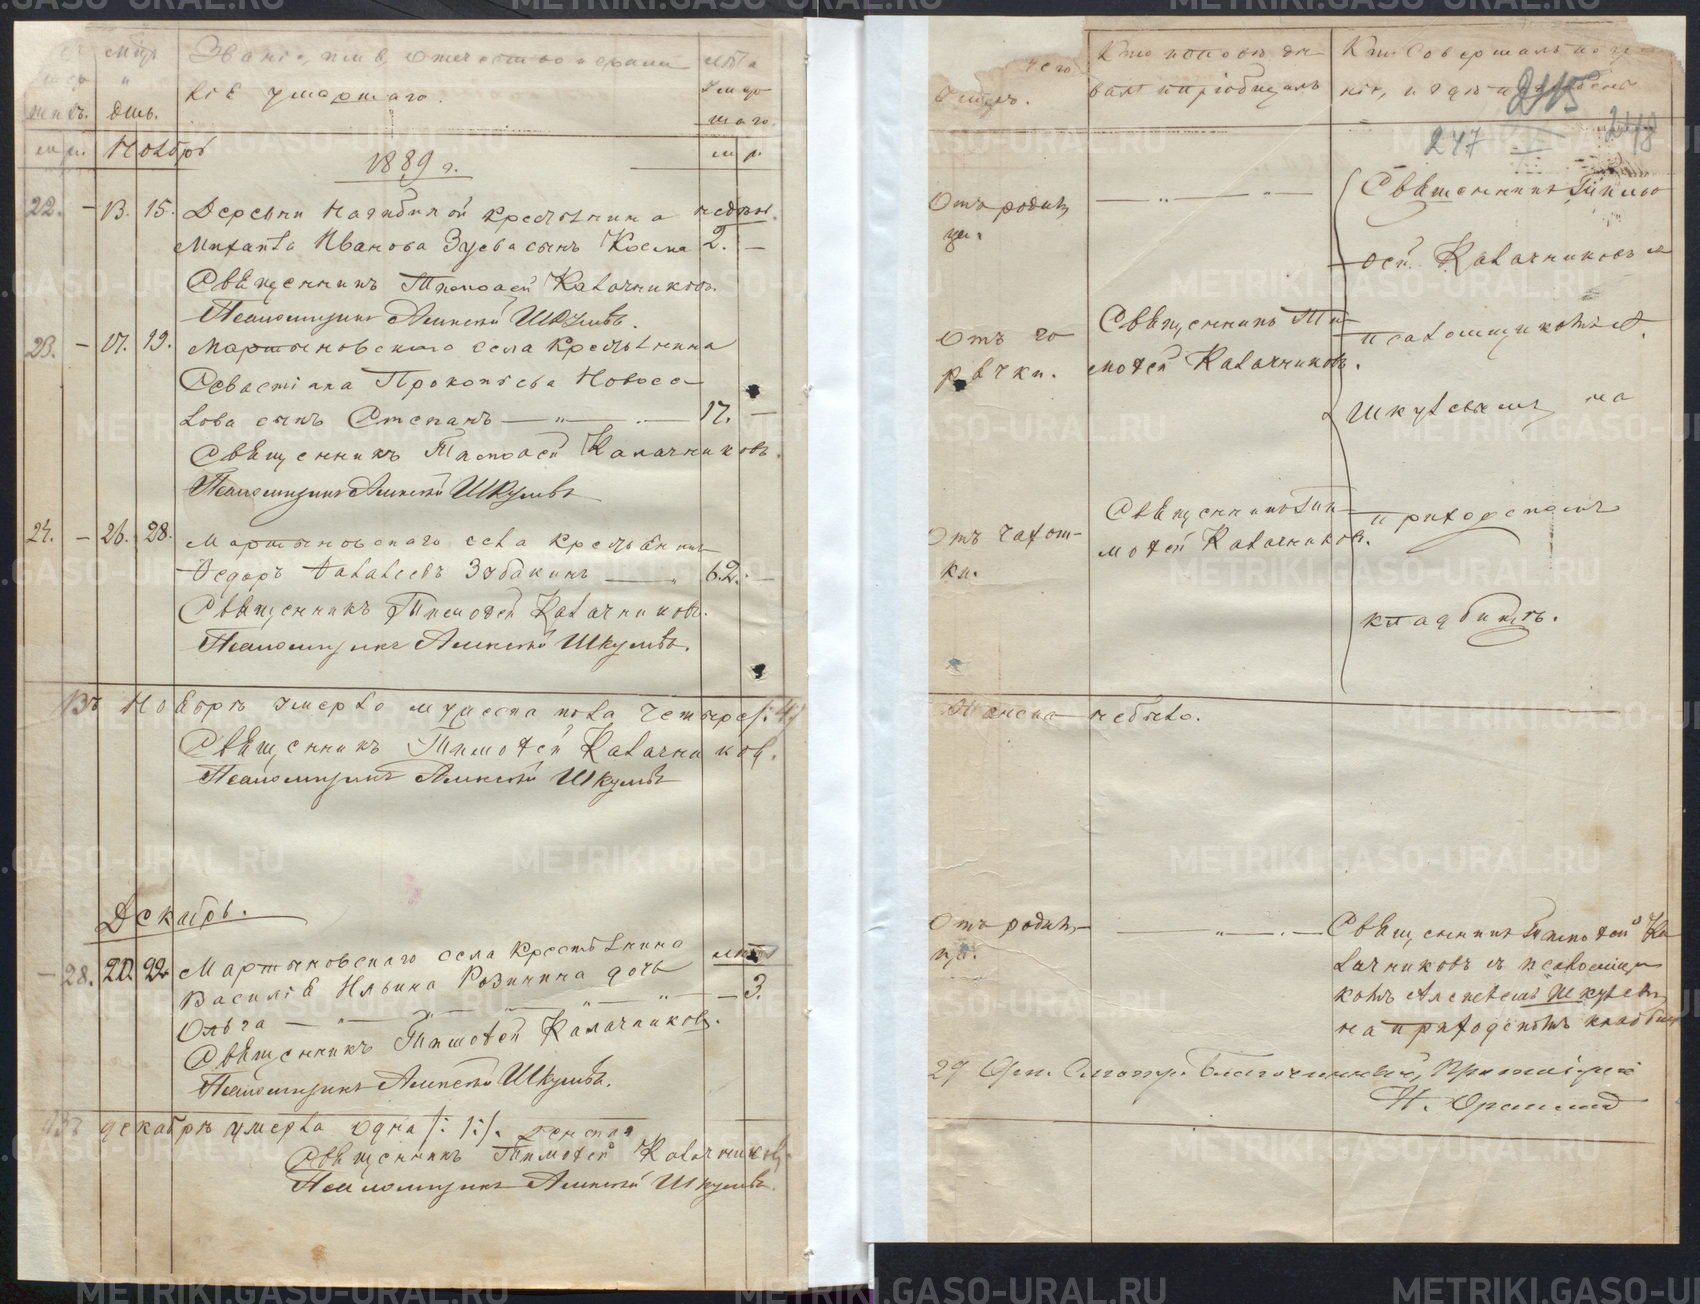 Мѣс.
и
день.
Званіе, имя, отчество и фамилія
умершаго.
Лѣта
умер
шаго.
м. ж.
Ноябрь
1889 г.
м. ж.
22. – 13. 15. Деревни Нагибиной крестьянина
недѣли.
Михаила Иванова Зуева сынъ Косма 2. –
Священникъ Тимоѳей Калачниковъ.
Псаломщикъ Алексѣй Шкулевъ.
23. – 17. 19. Мартыновскаго села крестьянина
Севастіана Прокопьева Новосе-
лова сынъ Степанъ — „ — 17. –
Священникъ Тимоѳей Калачниковъ.
Псаломщикъ Алексѣй Шкулевъ
24. – 26. 28. Мартыновскаго села крестьянинъ
Ѳедоръ Зубакинъ — „ 62. –
Священникъ Тимоѳей Калачниковъ.
Псаломщикъ Алексѣй Шкулевъ.
Въ Ноябрѣ умерло мужеска пола четыре
Священникъ Тимоѳей Калачников.
Псаломщикъ Алексѣй Шкулевъ
Декабрь.
– 28. 20. 22. Мартыновскаго села крестьянина
Василія Ильина Розинина дочь
Ольга — „ — „ — „ — „ — 3.
Священникъ Тимоѳей Калачниковъ.
Псаломщикъ Алексѣй Шкулевъ.
Въ декабрѣ умерла одна /: 1 :/. женска
Священникъ Тимоѳей Калачниковъ.
Псаломщикъ Алексѣй Шкулевъ.
чего
Кто исповѣды-
валъ и пріобщалъ
Кто совершалъ погре-
ніе, и гдѣ погребены
245
247
248
Отъ родим
ца.
— „ —
Священникъ Тимо-
ѳей Калачниковъ съ
Отъ го
рячки.
Священникъ Ти-
моѳей Калачниковъ.
псаломщикомъ А.
Шкулевымъ на
Отъ чахот-
ки.
Священникъ Ти-
моѳей Калачников.
приходскомъ
кладбищѣ.
Женска небыло.
Отъ родим-
ца.
— „ —
Священникъ Тимоѳей Ка
лачниковъ съ псаломщи
комъ Алексѣемъ Шкулевы
на приходскомъ кладбищ
29 Благочинный, Протоіерей
METRIKI.GASO-URAL.RU